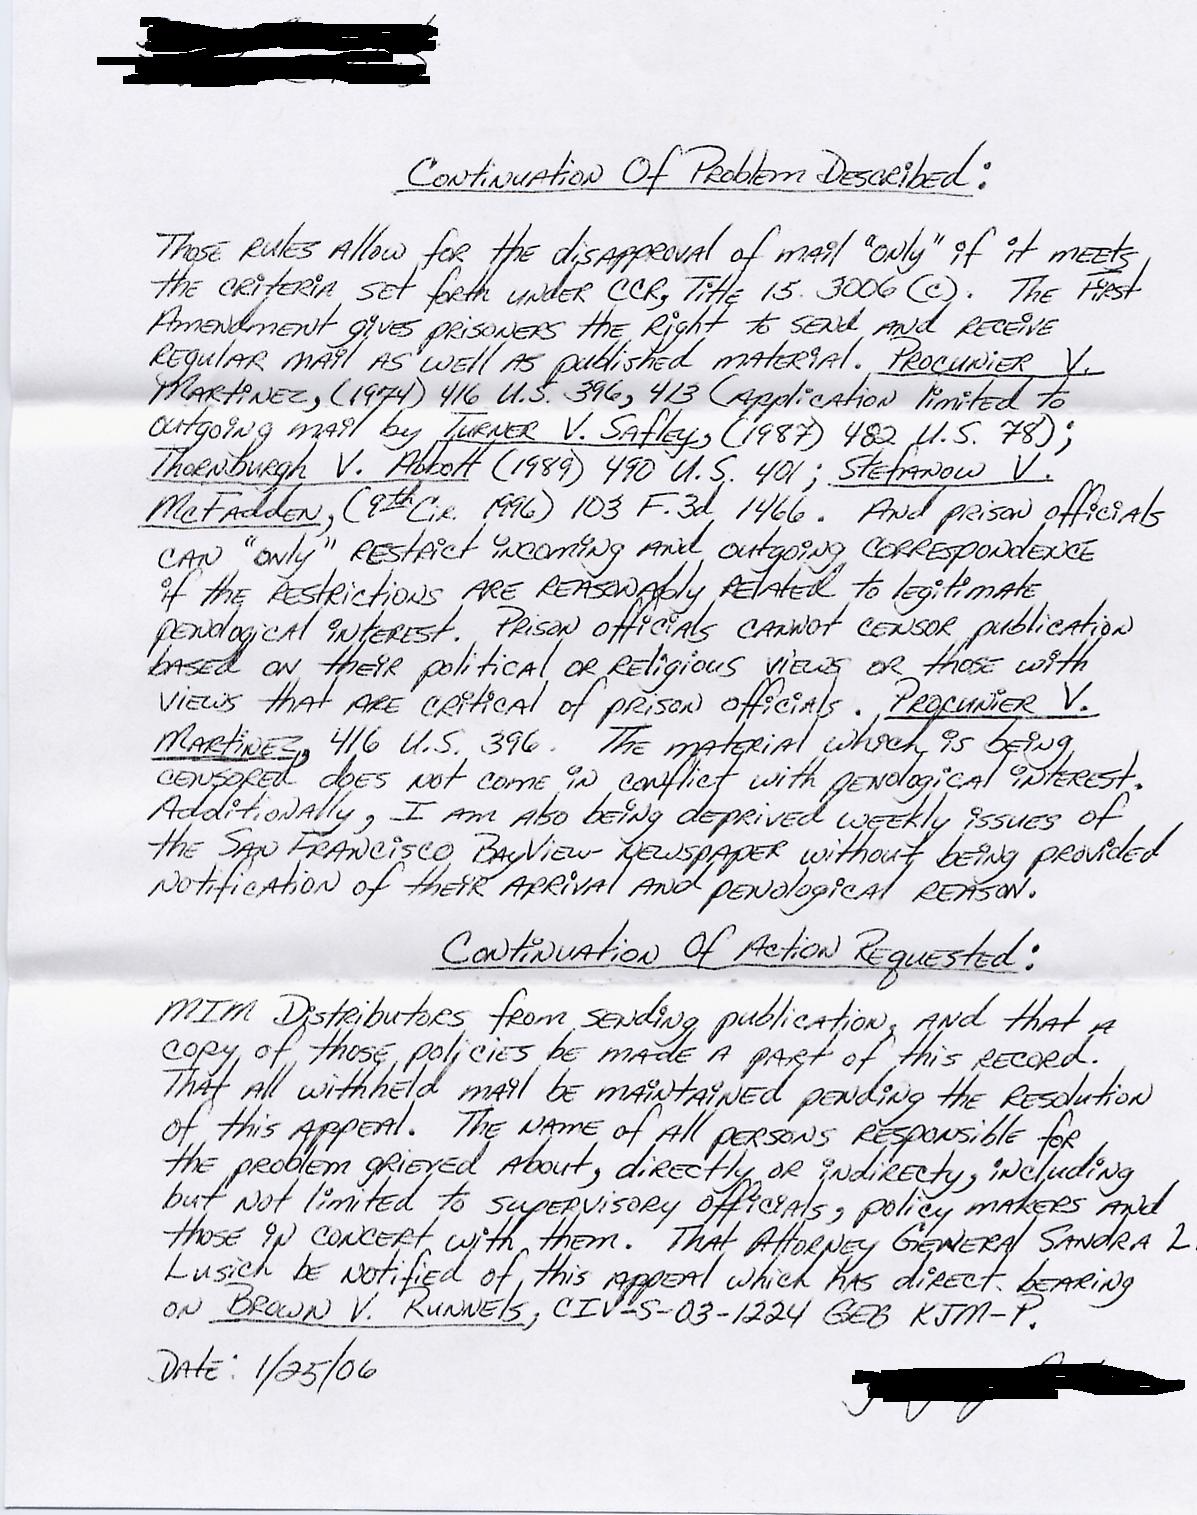 Continuation Of Problem Described:
Those rules allow for the disapproval of mail "only" if it meets
the criteria set forth under CCR, Title 15. 3006 (c). The First
Amendment gives prisoners the Right to send and receive
regular mail as well as published material. Procunier V.
Martinez, (1974) 416 U.S. 396, 413 (application limited to
outgoing mail by Turner V. Safley, (1987) 482 U.S. 78);
Thornburgh V. Abbott (1989) 490 U.S. 401; Stefanow V.
McFadden, (9th Cir. 1996) 103 F.3d 1466. And prison officials
can "only" restrict incoming and outgoing correspondence
if the restrictions are reasonably related to legitimate
penological interest. Prison officials cannot censor publication
based on their political or religious views or those with
views that are critical of prison officials. Procunier V.
Martinez, 416 U.S. 396. The material which is being
censored does not come in conflict with penological interest.
Additionally, I am also being deprived weekly issues of
the San Francisco BayView Newspaper without being provided
notification of their arrival and penological reason.
Continuation Of Action Requested:
MIM Distributors from sending publication, and that a
copy of those policies be made a part of this record.
That all withheld mail be maintained pending the resolution
of this appeal. The name of all persons responsible for
the problem grieved about, directly or indirecty, including
but not limited to supervisory officials, policy makers and
those in concert with them. That Attorney General Sandra L.
Lusich be notified of this appeal which has direct bearing
on Brown V. Runnels, CIV-S-03-1224 GEB KJM-P.
Date: 1/25/06